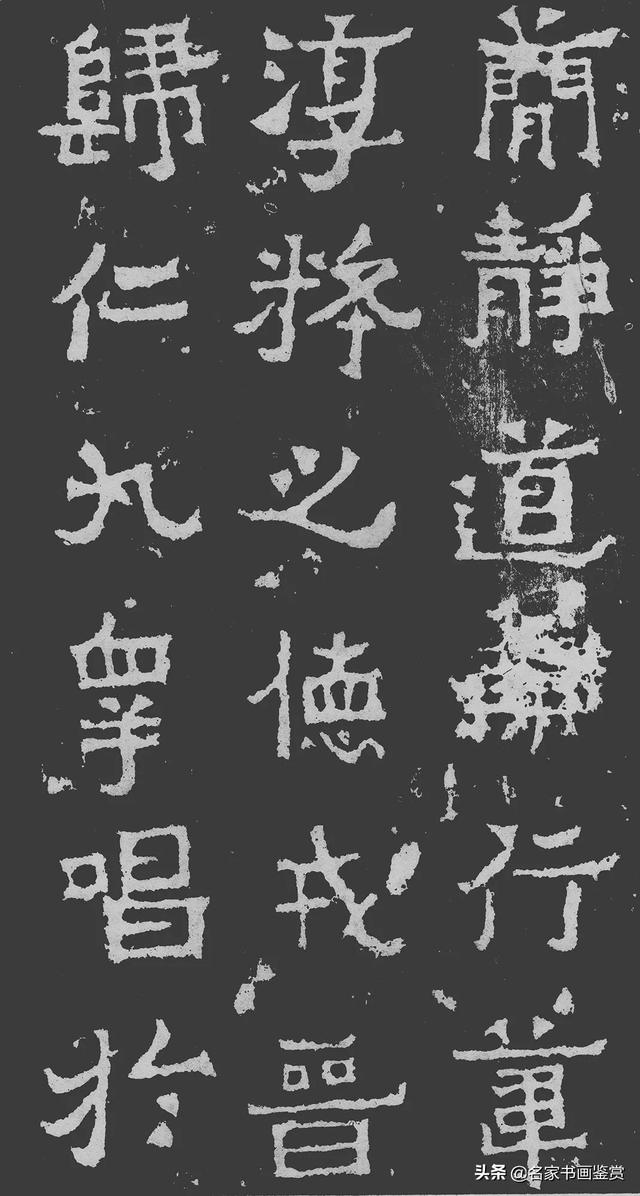 簡靜道兼行葦
淳粹之德戎晉
歸仁九皋唱於
头条 @名家书画鉴赏